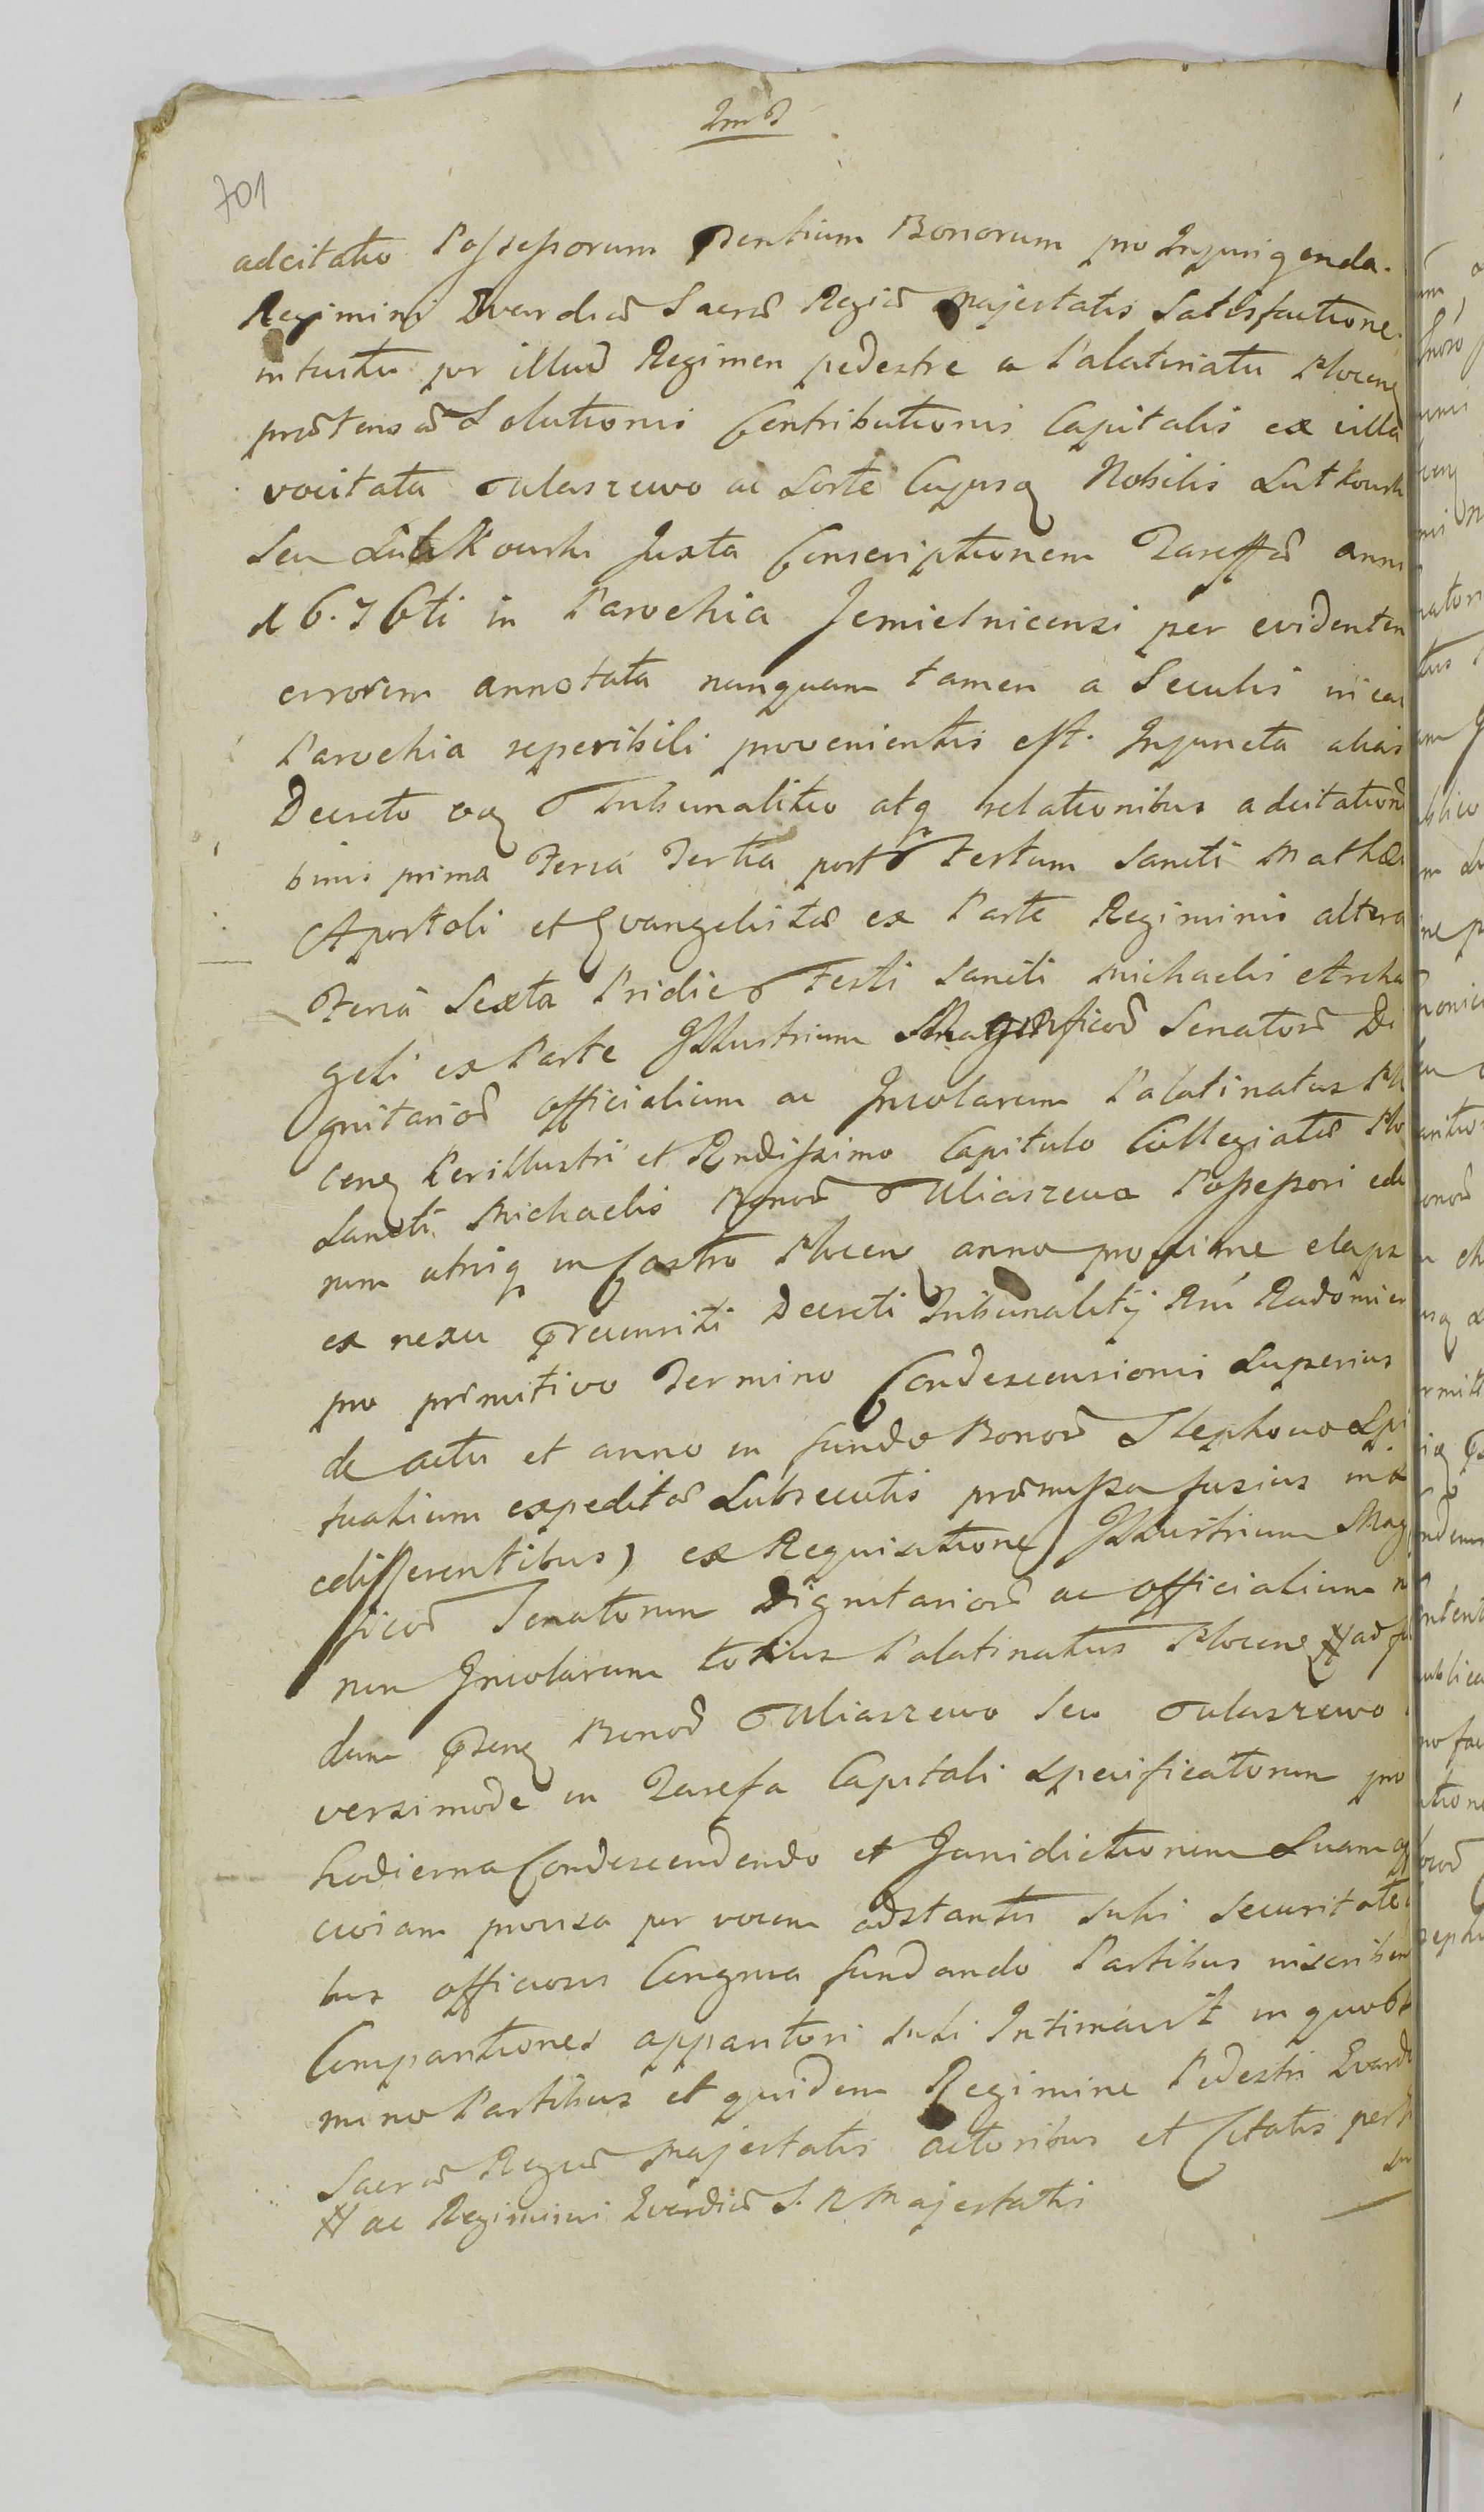 701
adcitatio Possessorum Bonorum pro Injungenda
Regimini Gvardiæ Sacræ Regiæ Majestatis Satisfactione
intuitu per illud Regimen pedestre a Palatinatu Plocen
prætensæ Solutionis Contributionis Capitalis ex villa
vocitata Ulaszewo ac Sorte Cujusq Nobilis Lutkowsk
seu Lutkowski Juxta Conscriptionem Tareffæ anni
1676ti in Parochia Jemielnicensi per evidenten
errorem annotata nunquam tamen a Seculis in ea
Parochia reperibili provenientis est. Injuncta alias
Decreto Tribunalitio atq relationibus adcitation
binis prima Feria Tertia post Festum Sancti Mathæi
Apostoli et Evangelistæ ex Parte Regiminis altera
Feria Sexta Pridie Festi Sancti Michaelis Archa
geli ex Parte Illustrium Magnificorum Senatorum Di
gnitariorum officialium ac Incolarum Palatinatus Plo
cen Perillustri et Rndissimo Capitulo Collegiatæ Plo
Sancti Michaelis Bonorum Uliaszewa Possessori
rum utriq in Castro Plocen anno proxime elaps
ex nexu præcursiti Decreti Tribunalitij Rni Radomien
pro primitivo Termino Condescensionis Superius
de actu et anno in fundo Bonorum Slepkowo Spi
tualium expeditæ Subsecutis præmissa fusius in se
edisserentibus) ex Requisitione Illustrium Mag
ficorum Senatorum Dignitariorum ac officialium n
non Incolarum totius Palatinatus Plocen # ad fu
dum Bonorum Uliaszewo seu Ulaszewo
versimode in Tarefa Capitali Specificatorum pro
hodierna Condescendendo et Jurisdictionem Suam
cuiam prævisa per vocem adstantis sibi Securitate
bus officiosis Congrua fundando Partibus inscriben
Comparitiones apparitori sibi Intimavit in quo
mino Partibus et quidem Regimine Pedestri Gvardi
Sacræ Regiæ Majestatis actoribus et Citatis per
# ac Regimini Gvardiæ S. R Majestatis